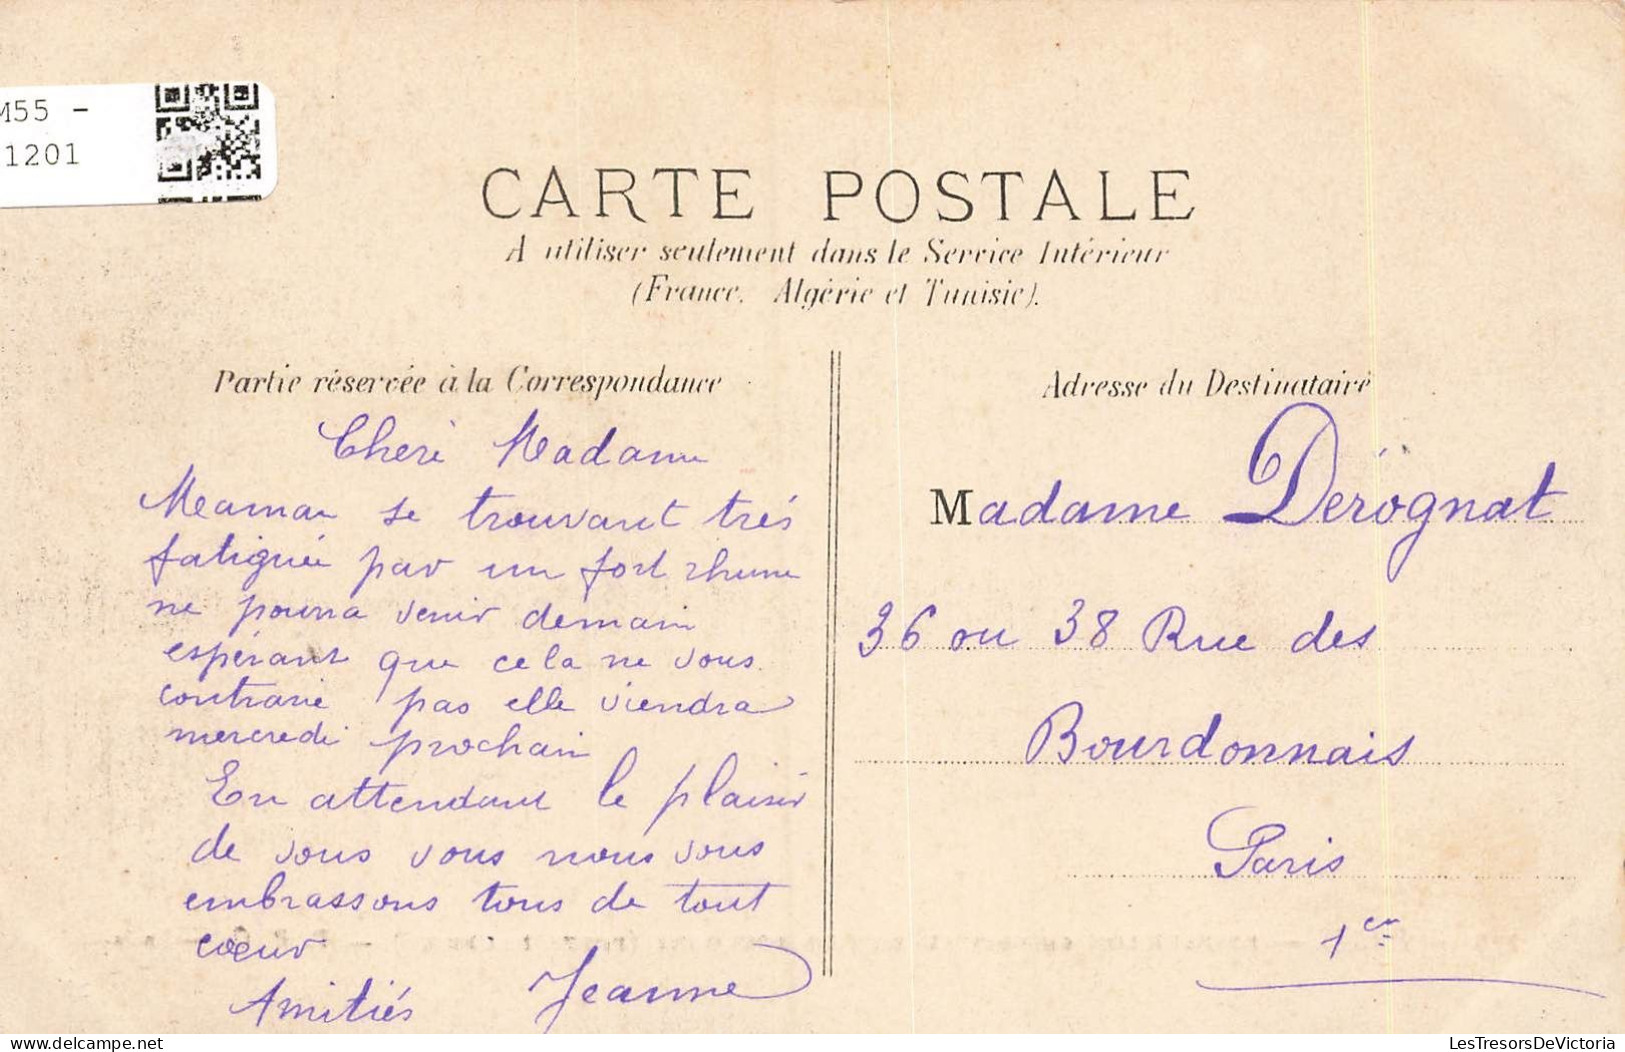 M55 -
1201
CARTE POSTALE
A utiliser seulement dans le Service Intérieur
(France, Algérie et Tunisie).
Partie réservée à la Correspondance
Cheri Madame
Maman se trouvant très
fatiguée par un fort rhume
ne pourra venir demain
espérant que cela ne vous
contrarie pas elle viendra
mercredi prochain
En attendant le plaisir
de vous vous nous vous
embrassons tous de tout
cœur
Amitiés Jeanne
Adresse du Destinataire
Madame Dérognat
36 ou 38 Rue des
Bourdonnais
Paris
1er
LesTresorsDeVictoria
delcampe.net